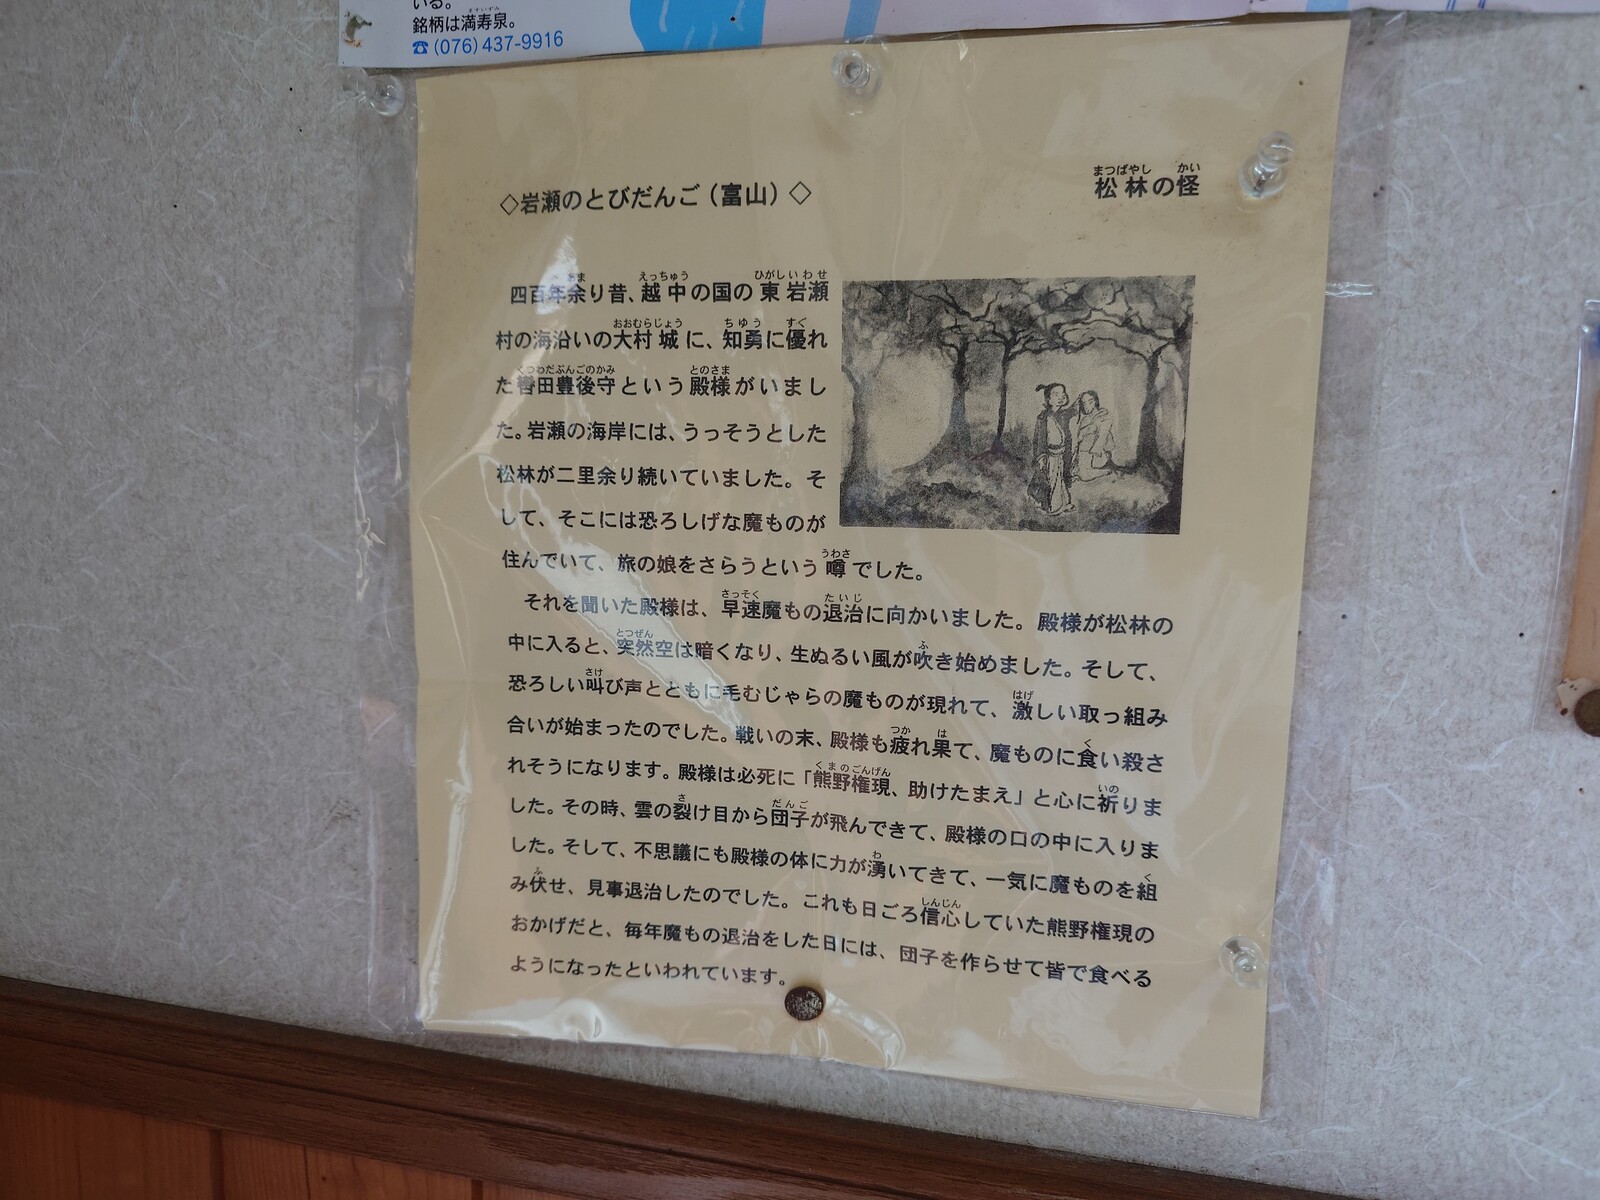 いる。
銘柄は満寿泉。
ますいずみ
☎(076)437-9916
まつばやし かい
松林の怪
◇岩瀬のとびだんご（富山）◇
あま えっちゅう ひがしいわせ
四百年余り昔、越中の国の東岩瀬
おおむらじょう ちゆう すぐ
村の海沿いの大村城に、知勇に優れ
くつわだぶんごのかみ とのさま
た轡田豊後守という殿様がいまし
た。岩瀬の海岸には、うっそうとした
松林が二里余り続いていました。そ
して、そこには恐ろしげな魔ものが
うわさ
住んでいて、旅の娘をさらうという噂でした。
さっそく たいじ
それを聞いた殿様は、早速魔もの退治に向かいました。殿様が松林の
とつぜん ふ
中に入ると、突然空は暗くなり、生ぬるい風が吹き始めました。そして、
さけ はげ
恐ろしい叫び声とともに毛むじゃらの魔ものが現れて、激しい取っ組み
つか は く
合いが始まったのでした。戦いの末、殿様も疲れ果て、魔ものに食い殺さ
くまのごんげん いの
れそうになります。殿様は必死に「熊野権現、助けたまえ」と心に祈りま
さ だんご
した。その時、雲の裂け目から団子が飛んできて、殿様の口の中に入りま
わ く
した。そして、不思議にも殿様の体に力が湧いてきて、一気に魔ものを組
ふ しんじん
み伏せ、見事退治したのでした。これも日ごろ信心していた熊野権現の
おかげだと、毎年魔もの退治をした日には、団子を作らせて皆で食べる
ようになったといわれています。